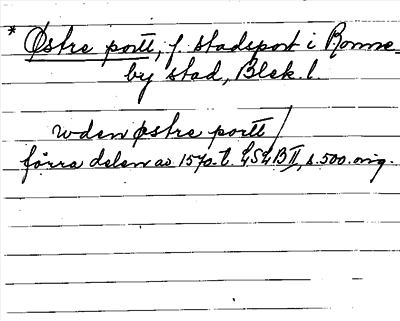 * Østre portt, f. stadsport i Ronne-
by stad, Blek. l.
uden østre portt/
förra delen av 1570-t. LSLB II, s. 500. orig.